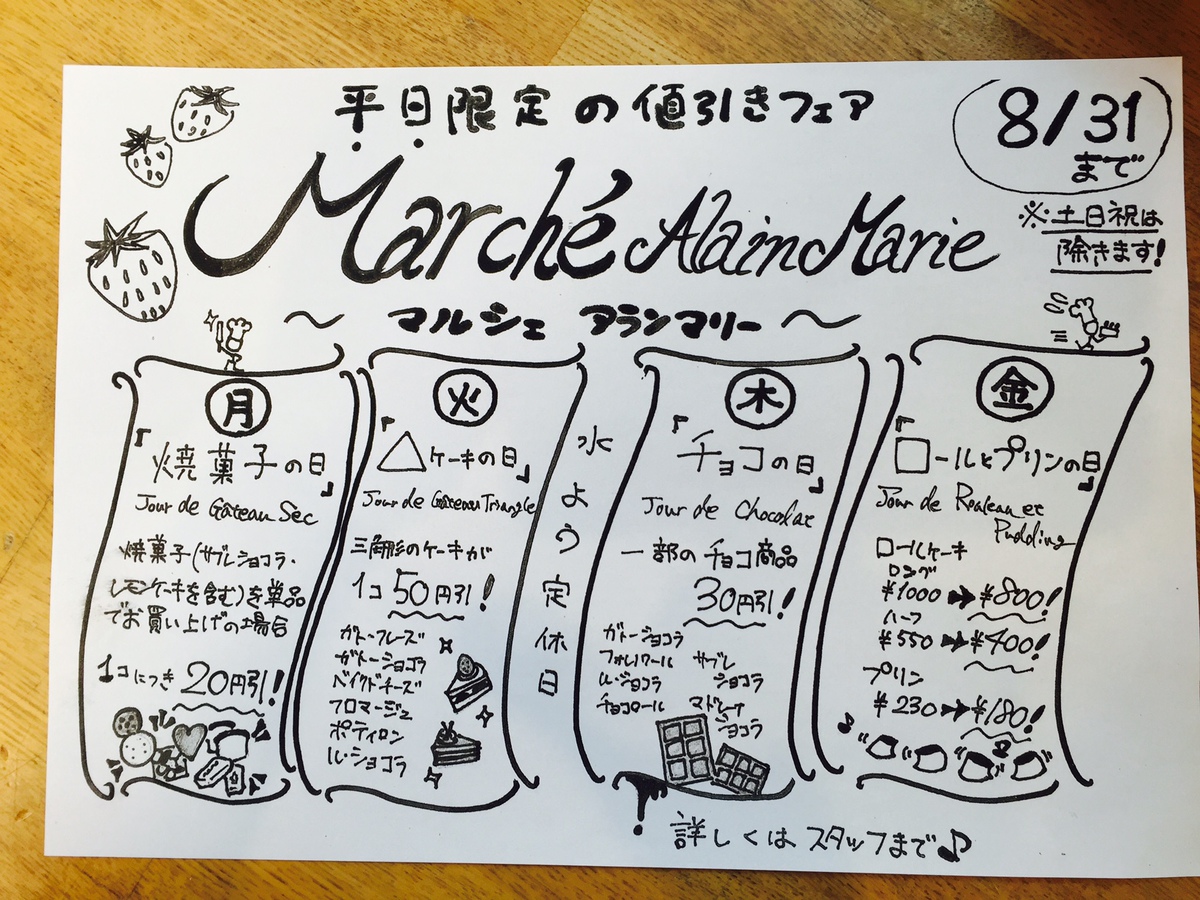 平日限定の値引きフェア
8/31
まで
※土日祝は
除きます!
Marché Alain Marie
~ マルシェ アランマリー ~
月
『焼菓子の日』
Jour de Gâteau Sec
焼菓子(サブレショコラ・
レモンケーキを含む)を単品
でお買い上げの場合
1コにつき 20円引!
火
『△ケーキの日』
Jour de Gâteau Triangle
三角形のケーキが
1コ 50円引!
ガトーフレーズ
ガトーショコラ
ベイクドチーズ
フロマージュ
ポティロン
ル・ショコラ
水よう定休日
木
『チョコの日』
Jour de Chocolat
一部のチョコ商品
30円引!
ガトーショコラ
フォレノワール
ル・ショコラ
チョコロール
サブレ
ショコラ
マドレーヌ
ショコラ
金
『ロールとプリンの日』
Jour de Rouleau et
Pudding
ロールケーキ
ロング
¥1000 ¥800!
ハーフ
¥550 ¥400!
プリン
¥230 ¥180!
詳しくは スタッフまで♪